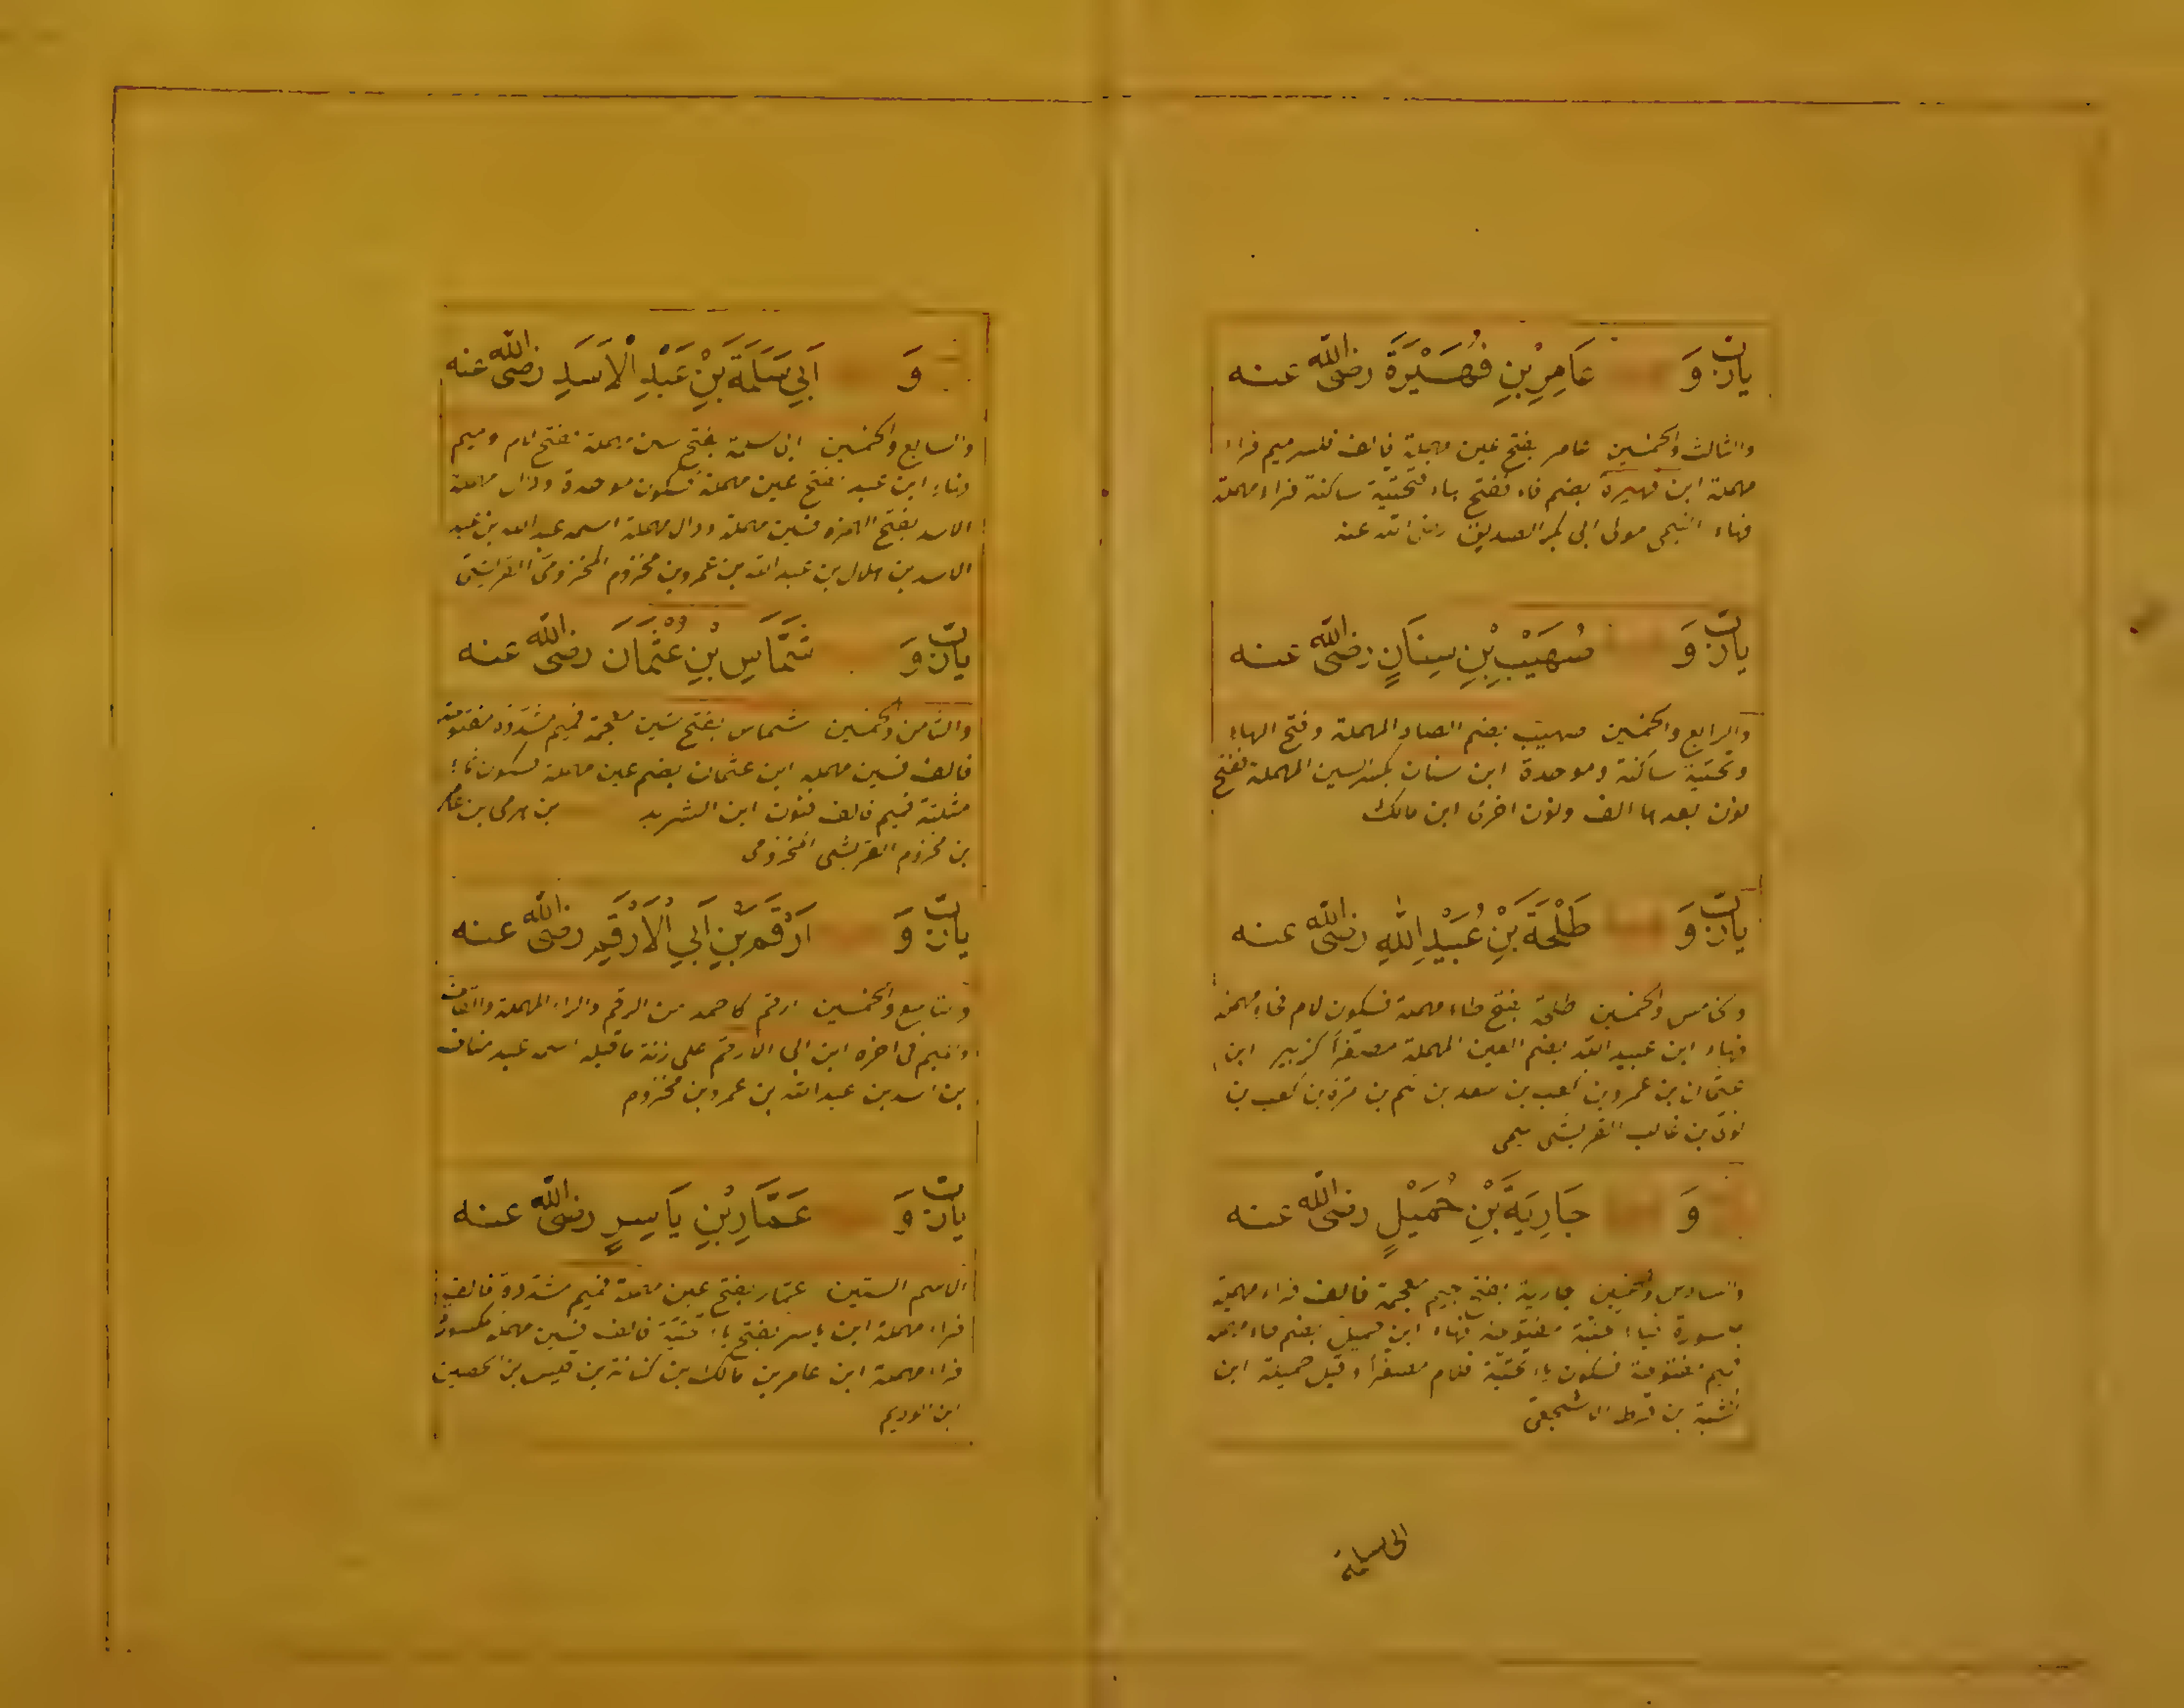 يارب وَ عَامِرِ بْنِ فُهَيْرَةَ رضى الله عنه
والثالث والخمسين عامر بفتح عين مهملة فالف فكسر ميم فراء
مهملة ابن فهيرة بضم فاء ففتح هاء فتحتية ساكنة فراء مهملة
فهاء التيمى مولى ابى بكر الصديق رضى الله عنه
يارب وَ صُهَيْبِ بْنِ سِنَانٍ رضى الله عنه
والرابع والخمسين صهيب بضم الصاد المهملة وفتح الهاء
وتحتية ساكنة وموحدة ابن سنان بكسر السين المهملة ففتح
نون بعدها الف ونون اخرى ابن مالك
يارب وَ طَلْحَةَ بْنِ عُبَيْدِ اللهِ رضى الله عنه
والخامس والخمسين طلحة بفتح طاء مهملة فسكون لام فحاء مهملة
فهاء ابن عبيد الله بضم العين المهملة مصغرا كزبير ابن
عثمان بن عمرو بن كعب بن سعد بن تيم بن مرة بن كعب بن
لؤى بن غالب القريشى تيمى
وَ جَارِيَةَ بْنِ حُمَيْلٍ رضى الله عنه
والسادس والخمسين جارية بفتح جيم معجمة فالف فراء مهملة
مكسورة فياء تحتية مفتوحة فهاء ابن حميل بضم حاء مهملة
فميم مفتوحة فسكون ياء تحتية فلام مصغرا وقيل حميلة ابن
نشبة بن قرط الاشجعى
ابى سلمة
وَ اَبِي سَلَمَةَ بْنِ عَبْدِ الْاَسَدِ رضى الله عنه
والسابع والخمسين ابى سلمة بفتح سين مهملة ففتح لام وميم
وهاء ابن عبد بفتح عين مهملة فسكون موحدة ودال مهملة
الاسد بفتح الهمزة فسين مهملة ودال مهملة اسمه عبد الله بن عبد
الاسد بن هلال بن عبد الله بن عمرو بن مخزوم المخزومى القريشى
يارب وَ شَمَّاسِ بْنِ عُثْمَانَ رضى الله عنه
والثامن والخمسين شماس بفتح شين معجمة فميم مشددة مفتوحة
فالف فسين مهملة ابن عثمان بضم عين مهملة فسكون ثاء
مثلثة فميم فالف فنون ابن الشريد بن هرمى بن عامر
بن مخزوم القريشى المخزومى
يارب وَ اَرْقَمَ بْنِ اَبِي الْاَرْقَمِ رضى الله عنه
والتاسع والخمسين ارقم كاحمد من الرقم والراء المهملة والقاف
والميم فى اخره ابن ابى الارقم على زنة ماقبله اسمه عبد مناف
بن اسد بن عبد الله بن عمرو بن مخزوم
يارب وَ عَمَّارِ بْنِ يَاسِرٍ رضى الله عنه
الاسم الستين عمار بفتح عين مهملة فميم مشددة فالف
فراء مهملة ابن ياسر بفتح ياء تحتية فالف فسين مهملة مكسورة
فراء مهملة ابن عامر بن مالك بن كنانة بن قيس بن الحصين
ابن الوديم